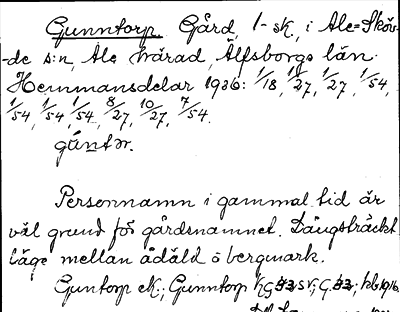 Gunntorp. Gård, 1-sk, i Ale-Skövde s:n, Ale härad, Älfsborgs län.
Hemmansdelar 1936: 1/18, 1/27, 1/27, 1/54,
1/54, 1/54, 1/54, 8/27, 10/27, 7/54.
gúntər.
Personnamn i gammal tid är
väl grund för gårdsnamnet. Långsträckt
läge mellan ådäld o bergmark.
Guntorp ek.; Gunntorp